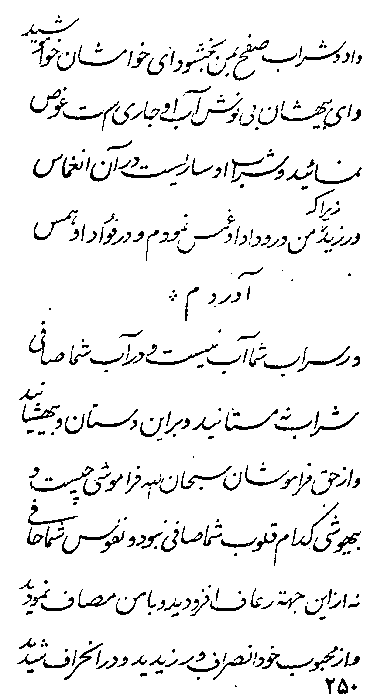 داد و شراب صفح بمن بخشود ای خوامشان خوا شید
و ای بیهشان بی نوش آب او جاری است غوض
نمائید و شراب او ساریست در آن انغماس
ورزید زیراکه من در وداد او غمس نمودم و در فؤاد او همس
آوردم *
در سراب شما آب نیست و در آب شما صافی
شراب نه مستانید و براین دستان و بیهشانید
و از حق فراموشان سبحان الله فراموشی چیست و
بیهوشی کدام قلوب شما صافی نبود و نفوس شما حافی
نه از این جهة رعاف افزودید و با من مصاف نمودید
و از محبوب خود انصراف ورزیدید و در انحراف شدید
۲۵۰